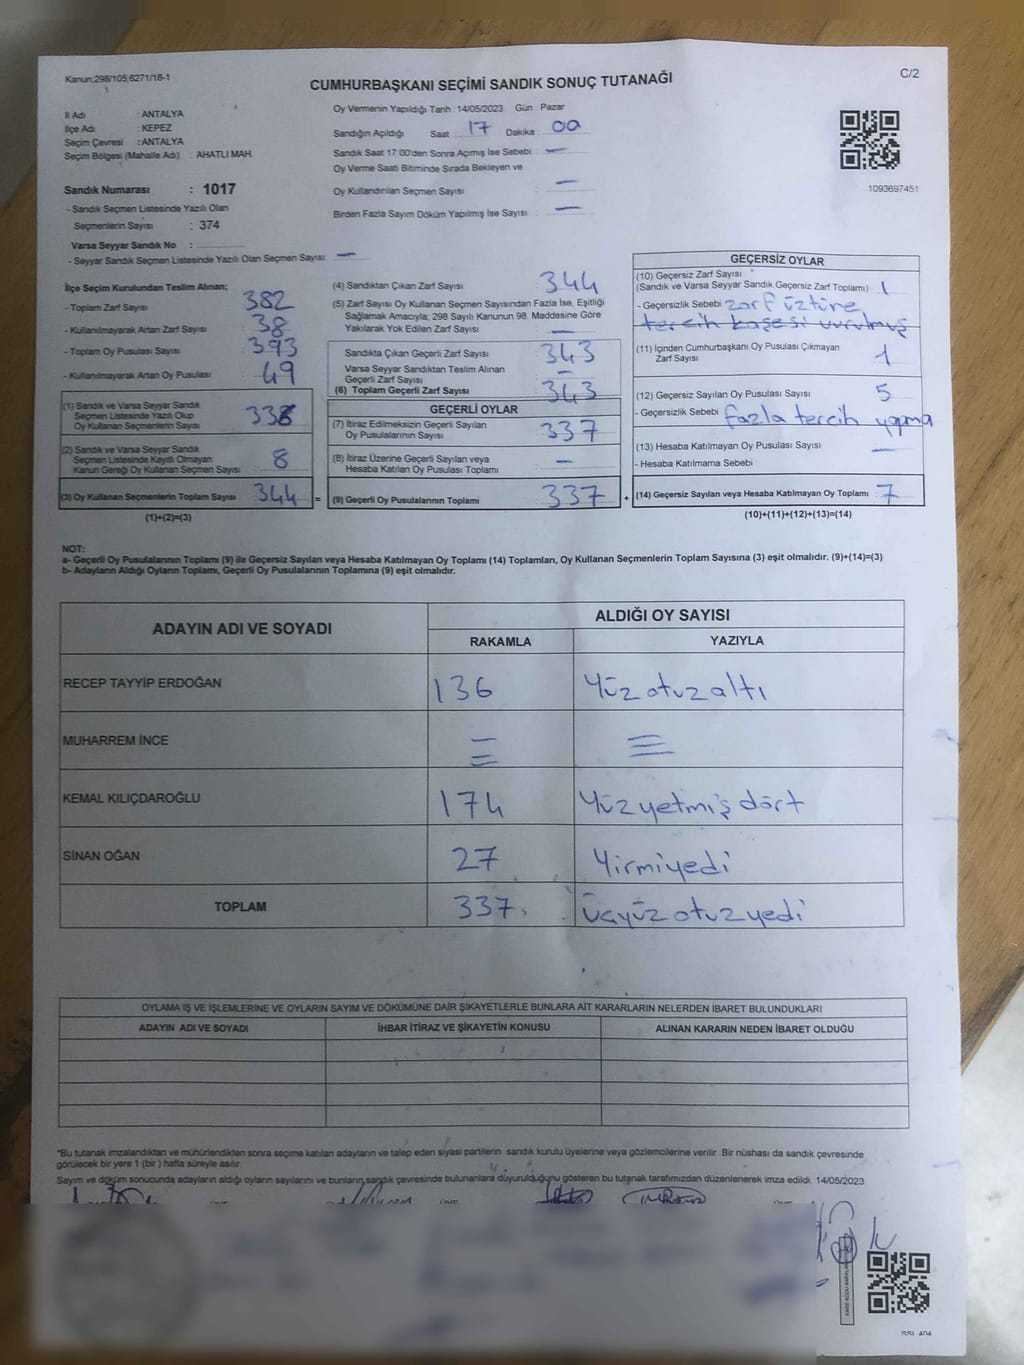 Kanun;298/105;6271/18-1
C/2
CUMHURBAŞKANI SEÇİMİ SANDIK SONUÇ TUTANAĞI
İl Adı : ANTALYA
İlçe Adı : KEPEZ
Seçim Çevresi : ANTALYA
Seçim Bölgesi (Mahalle Adı) : AHATLI MAH.
Oy Vermenin Yapıldığı Tarih 14/05/2023 Gün : Pazar
Sandığın Açıldığı Saat : 17 Dakika : 00
Sandık Saat 17.00'den Sonra Açımış İse Sebebi : —
Oy Verme Saati Bitiminde Sırada Bekleyen ve
Oy Kullandırılan Seçmen Sayısı : —
Birden Fazla Sayım Döküm Yapılmış İse Sayısı : —
1093697451
Sandık Numarası : 1017
- Sandık Seçmen Listesinde Yazılı Olan
Seçmenlerin Sayısı : 374
Varsa Seyyar Sandık No :
- Seyyar Sandık Seçmen Listesinde Yazılı Olan Seçmen Sayısı: —
İlçe Seçim Kurulundan Teslim Alınan;
- Toplam Zarf Sayısı : 382
- Kullanılmayarak Artan Zarf Sayısı : 38
- Toplam Oy Pusulası Sayısı : 393
- Kullanılmayarak Artan Oy Pusulası : 49
(1) Sandık ve Varsa Seyyar Sandık
Seçmen Listesinde Yazılı Olup
Oy Kullanan Seçmenlerin Sayısı : 336
(2) Sandık ve Varsa Seyyar Sandık
Seçmen Listesinde Kayıtlı Olmayan
Kanun Gereği Oy Kullanan Seçmen Sayısı : 8
(3) Oy Kullanan Seçmenlerin Toplam Sayısı : 344 =
(1)+(2)=(3)
(4) Sandıktan Çıkan Zarf Sayısı : 344
(5) Zarf Sayısı Oy Kullanan Seçmen Sayısından Fazla İse, Eşitliği
Sağlamak Amacıyla; 298 Sayılı Kanunun 98. Maddesine Göre
Yakılarak Yok Edilen Zarf Sayısı : —
Sandıkta Çıkan Geçerli Zarf Sayısı : 343
Varsa Seyyar Sandıktan Teslim Alınan
Geçerli Zarf Sayısı : —
(6) Toplam Geçerli Zarf Sayısı : 343
GEÇERLİ OYLAR
(7) İtiraz Edilmeksizin Geçerli Sayılan
Oy Pusulalarının Sayısı : 337
(8) İtiraz Üzerine Geçerli Sayılan veya
Hesaba Katılan Oy Pusulası Toplamı : —
(9) Geçerli Oy Pusulalarının Toplamı : 337 +
GEÇERSİZ OYLAR
(10) Geçersiz Zarf Sayısı
(Sandık ve Varsa Seyyar Sandık Geçersiz Zarf Toplamı) : 1
- Geçersizlik Sebebi : zarf üztüne
tercih kaşesi vurulmuş
(11) İçinden Cumhurbaşkanı Oy Pusulası Çıkmayan
Zarf Sayısı : 1
(12) Geçersiz Sayılan Oy Pusulası Sayısı : 5
- Geçersizlik Sebebi : fazla tercih yapma
(13) Hesaba Katılmayan Oy Pusulası Sayısı : —
- Hesaba Katılmama Sebebi
(14) Geçersiz Sayılan veya Hesaba Katılmayan Oy Toplamı : 7
(10)+(11)+(12)+(13)=(14)
NOT:
a- Geçerli Oy Pusulalarının Toplamı (9) ile Geçersiz Sayılan veya Hesaba Katılmayan Oy Toplamı (14) Toplamları, Oy Kullanan Seçmenlerin Toplam Sayısına (3) eşit olmalıdır. (9)+(14)=(3)
b- Adayların Aldığı Oyların Toplamı, Geçerli Oy Pusulalarının Toplamına (9) eşit olmalıdır.
ADAYIN ADI VE SOYADI
ALDIĞI OY SAYISI
RAKAMLA YAZIYLA
RECEP TAYYİP ERDOĞAN 136 Yüz otuz altı
MUHARREM İNCE
KEMAL KILIÇDAROĞLU 174 Yüz yetmiş dört
SİNAN OĞAN 27 Yirmi yedi
TOPLAM 337 üçyüz otuz yedi
OYLAMA İŞ VE İŞLEMLERİNE VE OYLARIN SAYIM VE DÖKÜMÜNE DAİR ŞİKAYETLERLE BUNLARA AİT KARARLARIN NELERDEN İBARET BULUNDUKLARI
ADAYIN ADI VE SOYADI İHBAR İTİRAZ VE ŞİKAYETİN KONUSU ALINAN KARARIN NEDEN İBARET OLDUĞU
*Bu tutanak imzalandıktan ve mühürlendikten sonra seçime katılan adayların ve talep eden siyasi partilerin sandık kurulu üyelerine veya gözlemcilerine verilir. Bir nüshası da sandık çevresinde
görülecek bir yere 1 (bir) hafta süreyle asılır.
Sayım ve döküm sonucunda adayların aldığı oyların sayılarını ve bunların sandık çevresinde bulunanlara duyurulduğunu gösteren bu tutanak tarafımızdan düzenlenerek imza edildi. 14/05/2023